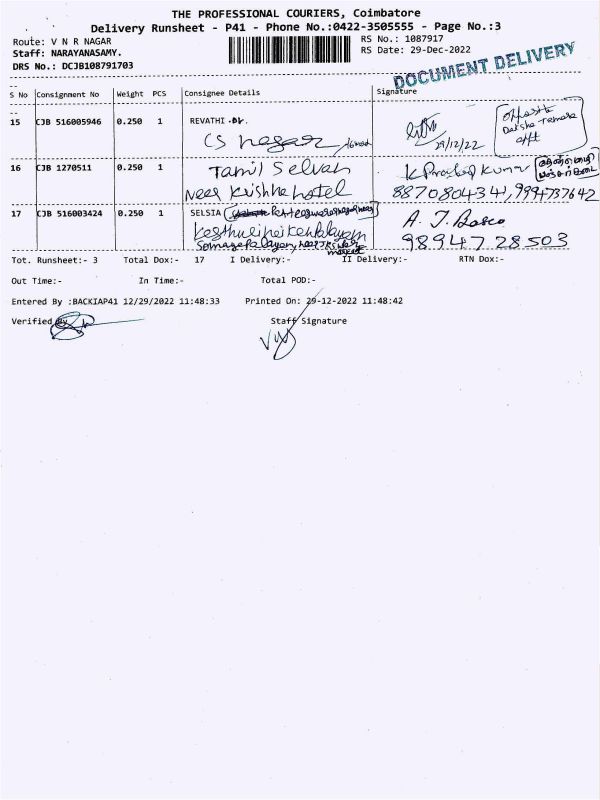 THE PROFESSIONAL COURIERS, Coimbatore
Delivery Runsheet - P41 - Phone No.:0422-3505555 - Page No.:3
Route: V N R NAGAR
RS No.: 1087917
Staff: NARAYANASAMY.
RS Date: 29-Dec-2022
DRS No.: DCJB108791703
DOCUMENT DELIVERY
S No Consignment No Weight PCS Consignee Details Signature
15 CJB 516005946 0.250 1 REVATHI .Dr.
CS nagar
29/12/22
opposite
Daisha
apt
16 CJB 1270511 0.250 1 Tamil Selvan
Near Krishna hotel
K Prastap Kumar
8870804341, 9994737642
17 CJB 516003424 0.250 1 SELSIA
A. J. Bosco
98947 28503
Tot. Runsheet:- 3 Total Dox:- 17 I Delivery:- II Delivery:- RTN Dox:-
Out Time:- In Time:- Total POD:-
Entered By :BACKIAP41 12/29/2022 11:48:33 Printed On: 29-12-2022 11:48:42
Verified By Staff Signature